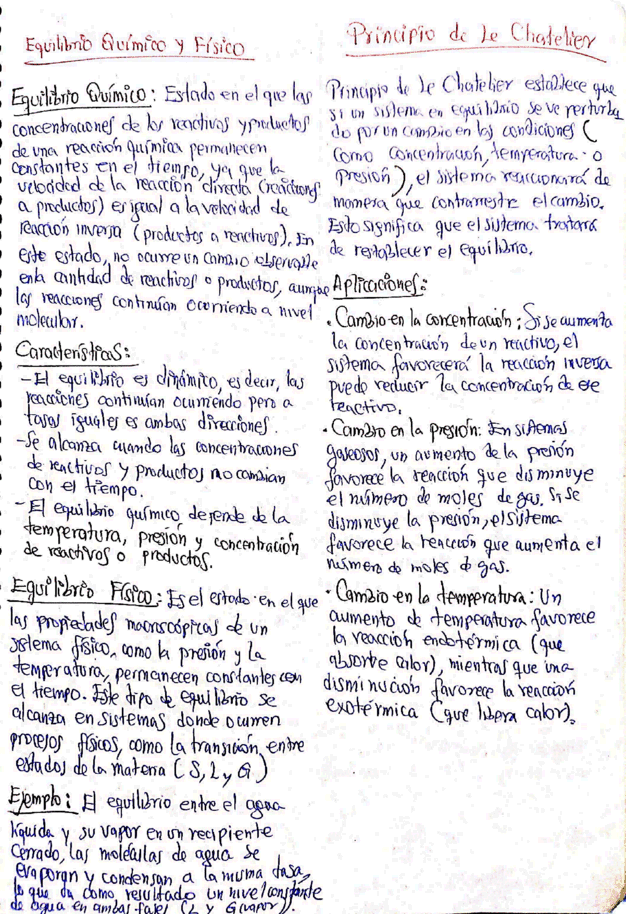 Equilibrio Químico y Físico
Equilibrio Químico: Estado en el que las
concentraciones de los reactivos y productos
de una reacción química permanecen
constantes en el tiempo, ya que la
velocidad de la reacción directa (reactivos
a productos) es igual a la velocidad de
reacción inversa (productos a reactivos). En
este estado, no ocurre un cambio observable
en la cantidad de reactivos o productos, aunque
las reacciones continúan ocurriendo a nivel
molecular.
Características:
- El equilibrio es dinámico, es decir, las
reacciones continúan ocurriendo pero a
tasas iguales es ambas direcciones.
- Se alcanza cuando las concentraciones
de reactivos y productos no cambian
con el tiempo.
- El equilibrio químico depende de la
temperatura, presión y concentración
de reactivos o productos.
Equilibrio Físico: Es el estado en el que
las propiedades macroscópicas de un
sistema físico, como la presión y la
temperatura, permanecen constantes con
el tiempo. Este tipo de equilibrio se
alcanza en sistemas donde ocurren
procesos físicos, como la transición entre
estados de la materia (S, L y G)
Ejemplo: El equilibrio entre el agua
líquida y su vapor en un recipiente
cerrado, las moléculas de agua se
evaporan y condensan a la misma tasa,
lo que da como resultado un nivel constante
de agua en ambas fases (L y G(vapor)).
Principio de Le Chatelier
Principio de Le Chatelier establece que
si un sistema en equilibrio se ve perturba
do por un cambio en las condiciones (
como concentración, temperatura o
presión), el sistema reaccionará de
manera que contrarreste el cambio.
Esto significa que el sistema tratará
de restablecer el equilibrio.
Aplicaciones:
• Cambio en la concentración: Si se aumenta
la concentración de un reactivo, el
sistema favorecerá la reacción inversa
puede reducir la concentración de ese
reactivo.
• Cambio en la presión: En sistemas
gaseosos, un aumento de la presión
favorece la reacción que disminuye
el número de moles de gas. Si se
disminuye la presión, el sistema
favorece la reacción que aumenta el
número de moles de gas.
• Cambio en la temperatura: Un
aumento de temperatura favorece
la reacción endotérmica (que
absorbe calor), mientras que una
disminución favorece la reacción
exotérmica (que libera calor).